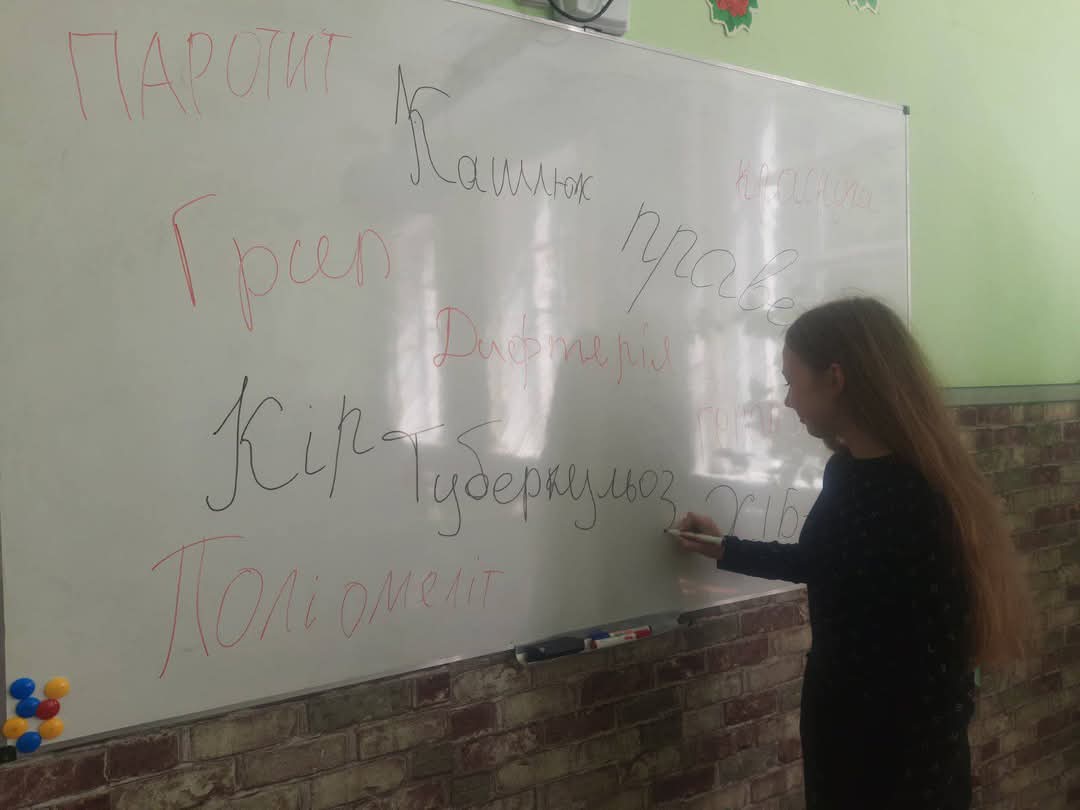 ПАРОТИТ
Кашлюк
краснуха
Грип
праве
Дифтерія
Кір
Туберкульоз
ХІБ-
Поліомеліт